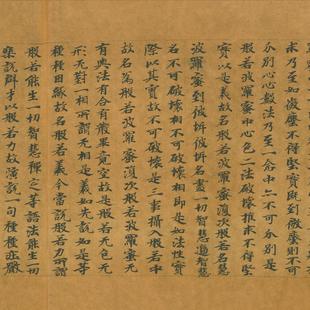 求乃至如微塵不得堅實既到微塵則不可
分別心心數法乃至一念中亦不可分別是
般若波羅蜜中心色二法破壞推求不得堅
實以是義故名般若波羅蜜復次般若名慧
波羅蜜到彼岸彼岸名盡一切智慧邊智慧
名不可破壞相不可破壞相即是如法性實
際以其實故不可破壞是三事攝入般若中
故名為般若波羅蜜復次般若波羅蜜无
有與法有合有散畢竟空故是般若无色无
形无對一相所謂无相是義如先說如是等
種種因緣故名般若義今當說般若力所謂
般若能生一切智慧禪定等諸法能生一切
樂說辯才以般若力故演說一句種種莊嚴